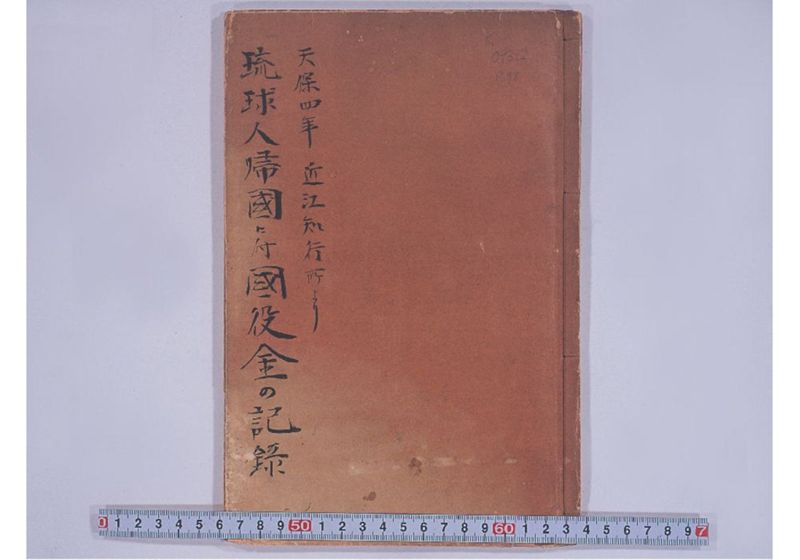 天保四年 近江知行所より
琉球人帰國ニ付國役金の記録
0 1 2 3 4 5 6 7 8 9 50 1 2 3 4 5 6 7 8 9 60 1 2 3 4 5 6 7 8 9 7